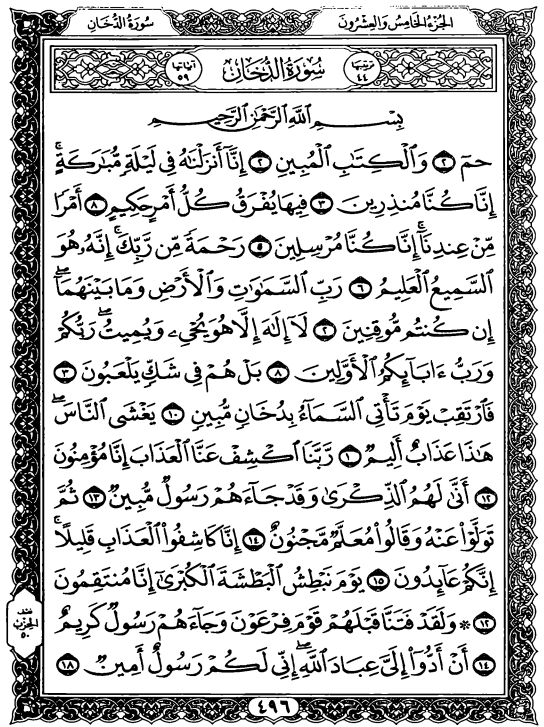 الجزء الخامس والعشرون
سورة الدخان
ترتيبها ٤٤ سُورَةُ الدُّخَانِ آياتها ٥٩
بِسْمِ اللَّهِ الرَّحْمَٰنِ الرَّحِيمِ
حمٓ ٢ وَالْكِتَابِ الْمُبِينِ ٢ إِنَّا أَنزَلْنَاهُ فِي لَيْلَةٍ مُّبَارَكَةٍ ۚ
إِنَّا كُنَّا مُنذِرِينَ ٣ فِيهَا يُفْرَقُ كُلُّ أَمْرٍ حَكِيمٍ ٨ أَمْرًا
مِّنْ عِندِنَا ۚ إِنَّا كُنَّا مُرْسِلِينَ ٥ رَحْمَةً مِّن رَّبِّكَ ۚ إِنَّهُ هُوَ
السَّمِيعُ الْعَلِيمُ ٦ رَبِّ السَّمَاوَاتِ وَالْأَرْضِ وَمَا بَيْنَهُمَا ۖ
إِن كُنتُم مُّوقِنِينَ ٢ لَا إِلَٰهَ إِلَّا هُوَ يُحْيِي وَيُمِيتُ ۖ رَبُّكُمْ
وَرَبُّ ءَابَائِكُمُ الْأَوَّلِينَ ٨ بَلْ هُمْ فِي شَكٍّ يَلْعَبُونَ ٣
فَارْتَقِبْ يَوْمَ تَأْتِي السَّمَاءُ بِدُخَانٍ مُّبِينٍ ١٠ يَغْشَى النَّاسَ ۖ
هَٰذَا عَذَابٌ أَلِيمٌ ١ رَّبَّنَا اكْشِفْ عَنَّا الْعَذَابَ إِنَّا مُؤْمِنُونَ
١٢ أَنَّىٰ لَهُمُ الذِّكْرَىٰ وَقَدْ جَاءَهُمْ رَسُولٌ مُّبِينٌ ١٣ ثُمَّ
تَوَلَّوْا عَنْهُ وَقَالُوا مُعَلَّمٌ مَّجْنُونٌ ١٤ إِنَّا كَاشِفُوا الْعَذَابِ قَلِيلًا ۚ
إِنَّكُمْ عَائِدُونَ ١٥ يَوْمَ نَبْطِشُ الْبَطْشَةَ الْكُبْرَىٰ إِنَّا مُنتَقِمُونَ
١٢ * وَلَقَدْ فَتَنَّا قَبْلَهُمْ قَوْمَ فِرْعَوْنَ وَجَاءَهُمْ رَسُولٌ كَرِيمٌ
١٤ أَنْ أَدُّوا إِلَيَّ عِبَادَ اللَّهِ ۖ إِنِّي لَكُمْ رَسُولٌ أَمِينٌ ١٨
نصف
الحزب
٥٠
٤٩٦